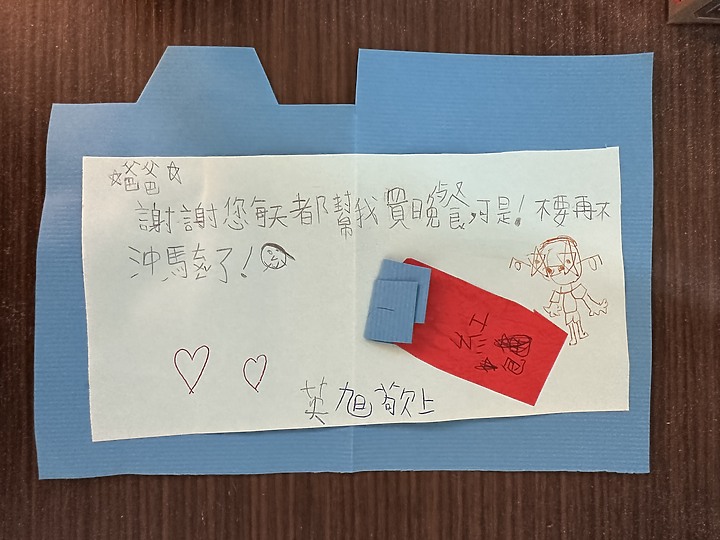 爸爸
謝謝您每天都幫我買晚餐,可是!不要再不
沖馬桶了!
紅
包
英旭敬上